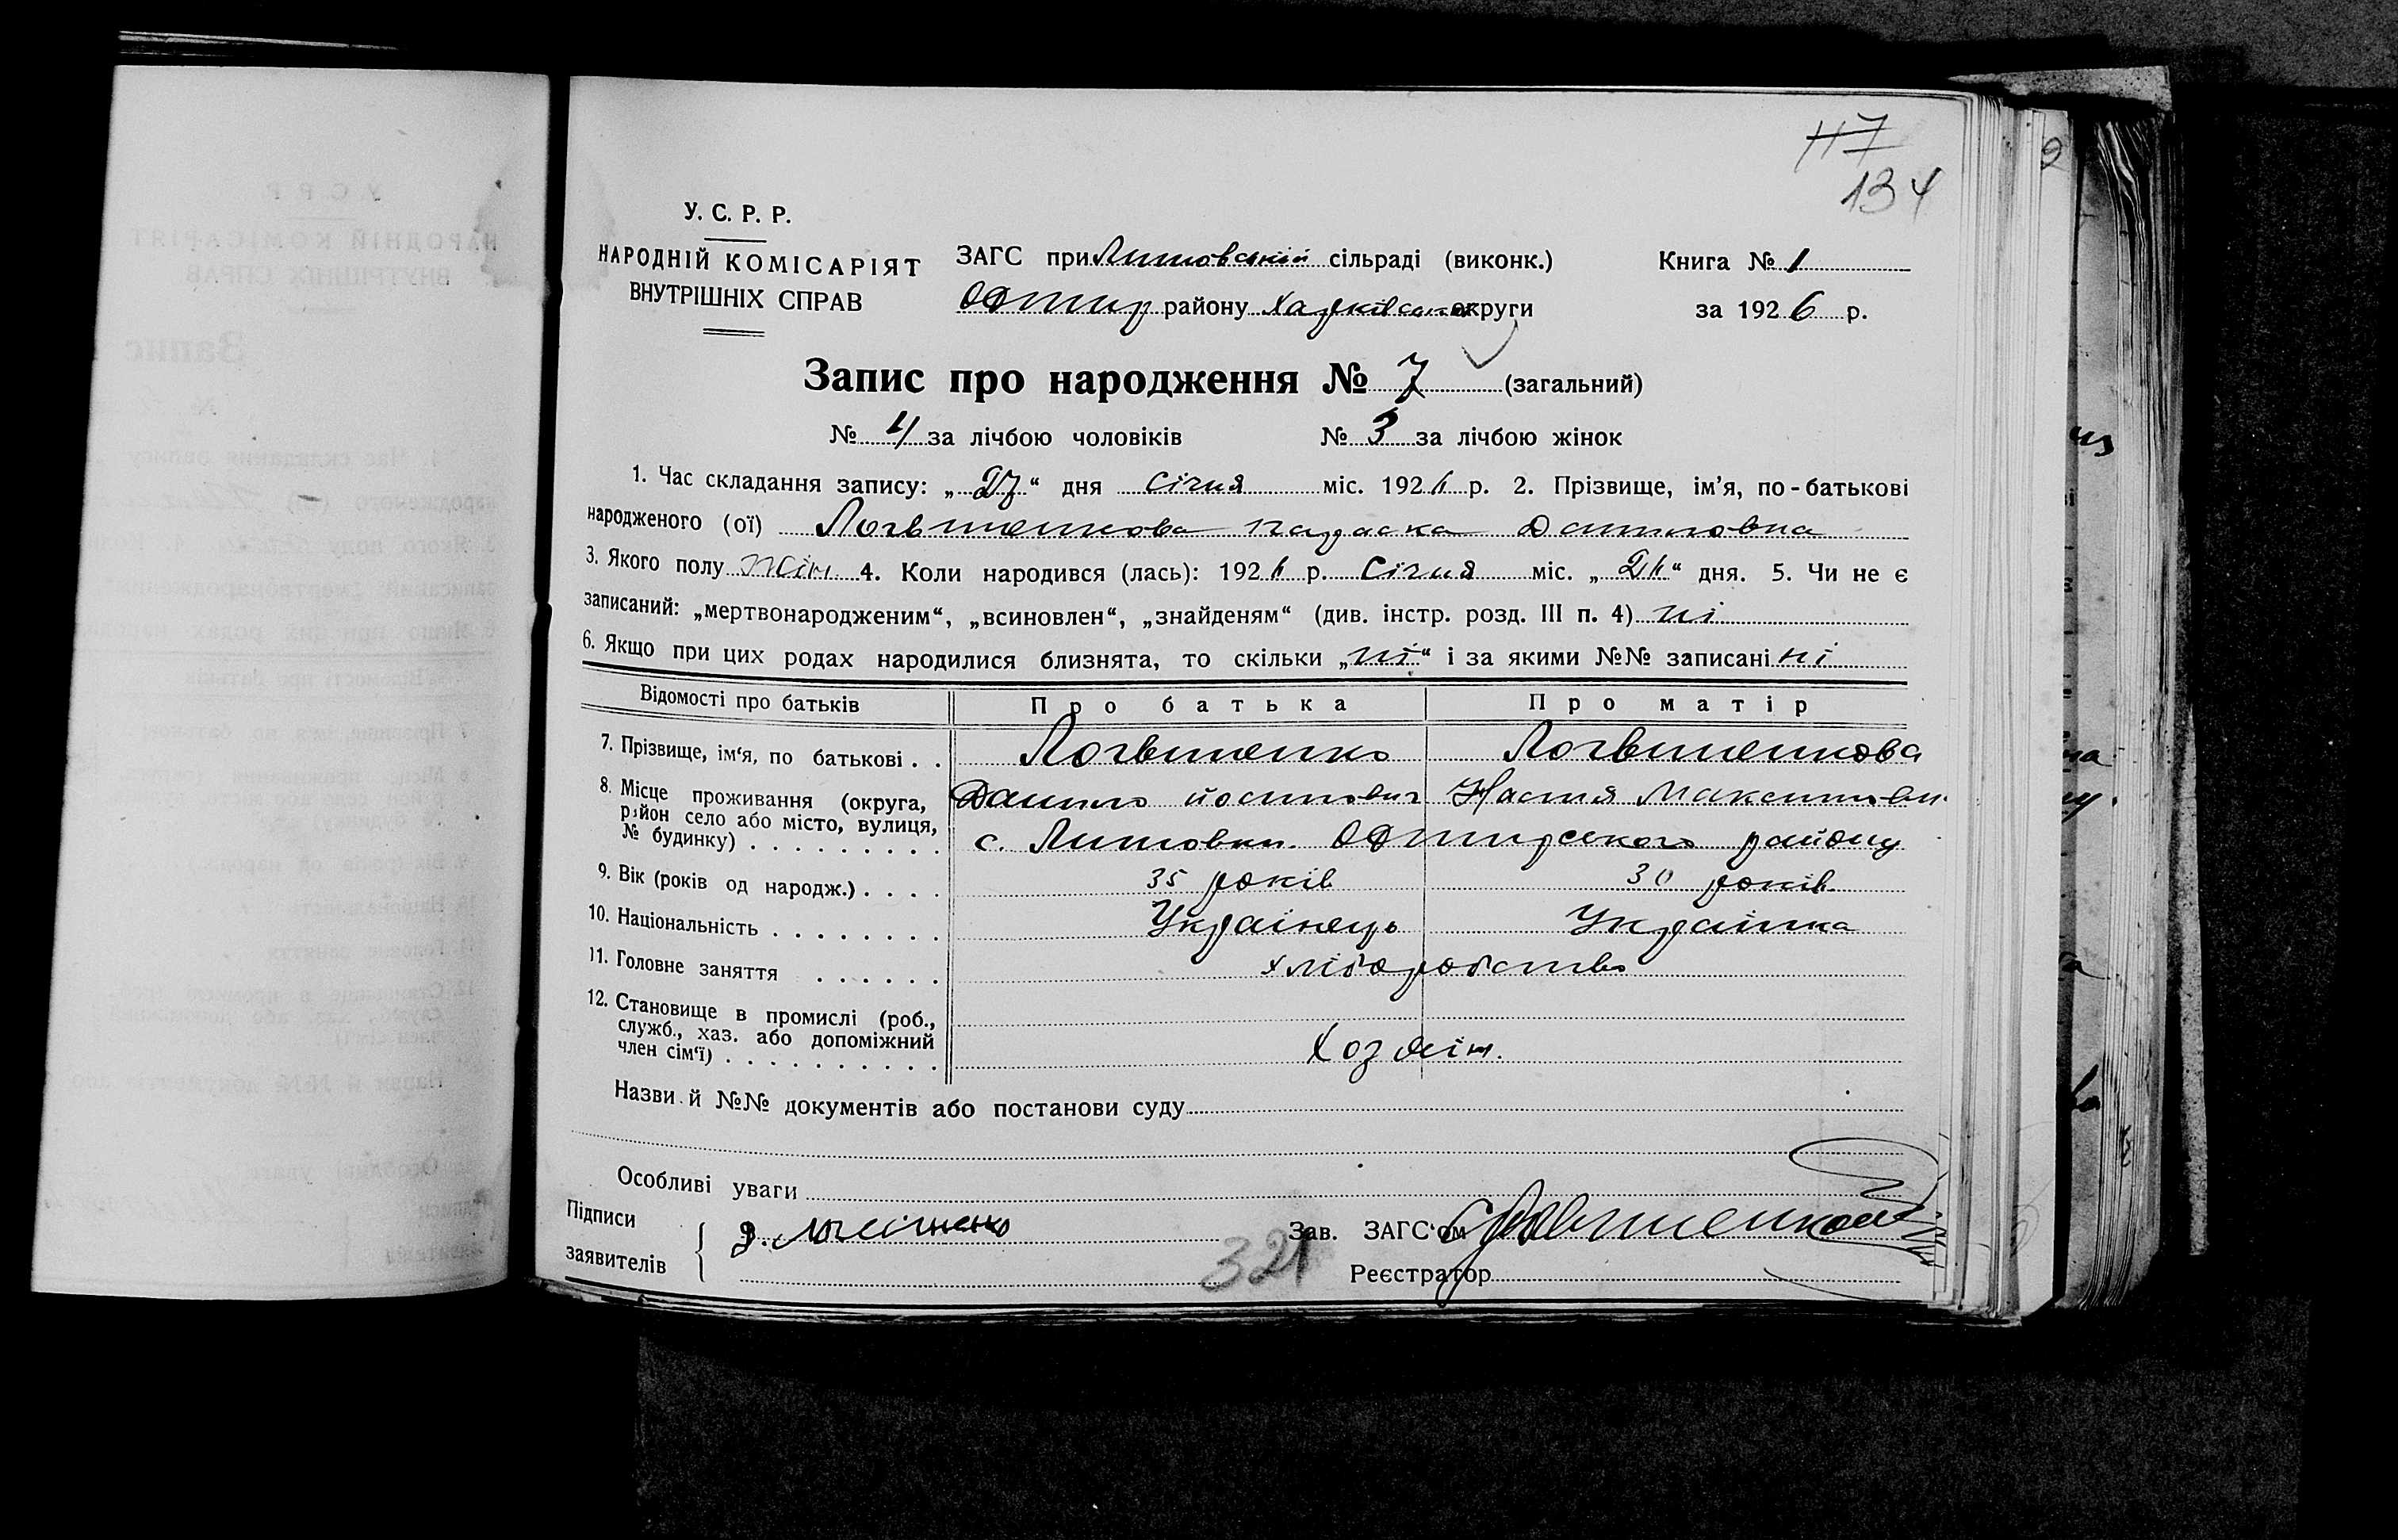 117
134
У. С. Р. Р.
НАРОДНІЙ КОМІСАРІЯТ
ВНУТРІШНІХ СПРАВ
ЗАГС при Литовській сільраді (виконк.)
Охтир району Харківської округи
Книга № 1
за 1926 р.
Запис про народження № 7 (загальний)
№ 4 за лічбою чоловіків № 3 за лічбою жінок
1. Час складання запису: „27“ дня січня міс. 1926 р. 2. Прізвище, ім’я, по-батькові
народженого (ої) Логвиненкова параска Даниловна
3. Якого полу жін. 4. Коли народився (лась): 1926 р. Січня міс. „26“ дня. 5. Чи не є
записаний: „мертвонародженим“, „всиновлен“, „знайденям“ (див. інстр. розд. III п. 4) ні
6. Якщо при цих родах народилися близнята, то скільки „ні“ і за якими №№ записані ні
Відомості про батьків Про батька Про матір
7. Прізвище, ім‘я, по батькові . . Логвиненко Логвиненкова
8. Місце проживання (округа, Данило Настя
р‚йон село або місто, вулиця,
№ будинку) . . . . . . . . . с. Литовки Охтирського району
9. Вік (років од народж.) . . . . 35 років 30 років
10. Національність . . . . . . . . Українець Українка
11. Головне заняття . . . . . . хліборобство
12. Становище в промислі (роб.,
служб., хаз. або допоміжний
член сім‘ї) . . . . . . . . . . Хозяін.
Назви й №№ документів або постанови суду
Особливі уваги
Підписи
заявителів
Зав. ЗАГС‘ом
321
Реєстратор